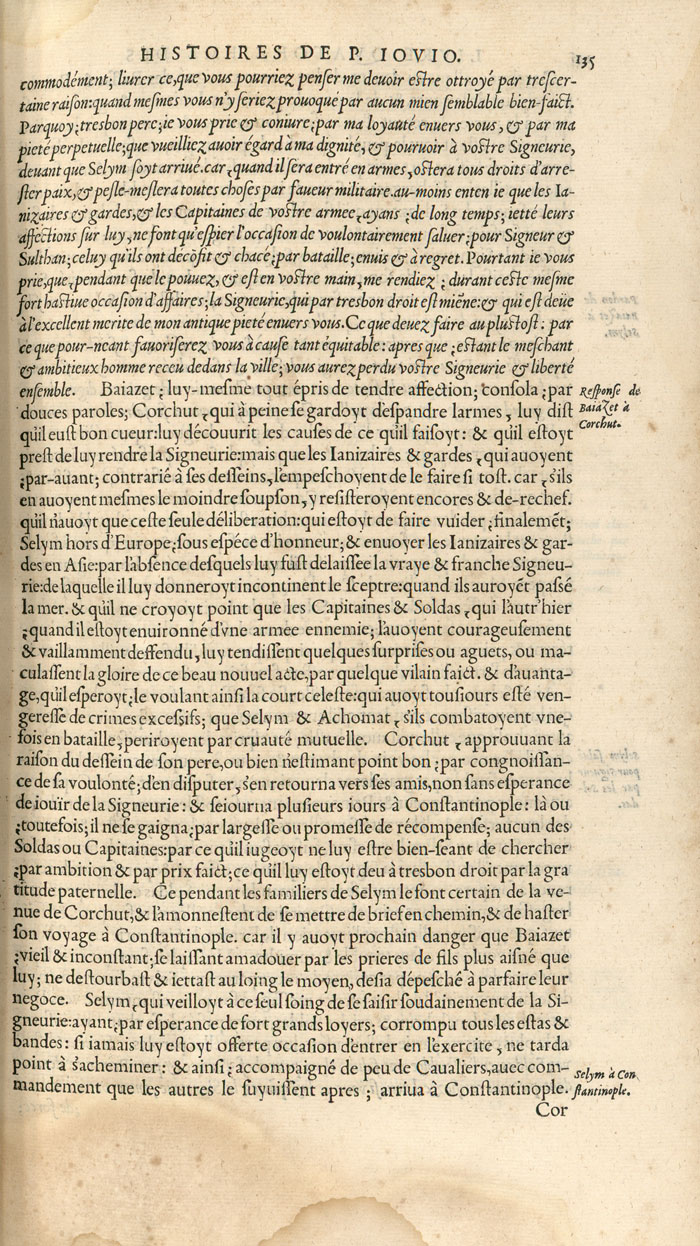 HISTOIRES DE P. IOVIO.
135
commodément; liurer ce, que vous pourriez penser me deuoir estre ottroyé par trescer-
taine raison: quand mesmes vous n'y seriez prouoqué par aucun mien semblable bien-faict.
Parquoy; tresbon pere; ie vous prie & coniure; par ma loyauté enuers vous, & par ma
pieté perpetuelle; que vueilliez auoir égard à ma dignité, & pouruoir à vostre Signeurie,
deuant que Selym soyt arriué. car, quand il sera entré en armes, ostera tous droits d'arre-
ster paix, & pesle-meslera toutes choses par faueur militaire. au-moins enten ie que les Ia-
nizaires & gardes, & les Capitaines de vostre armee, ayans ; de long temps; ietté leurs
affections sur luy, ne font qu'espier l'occasion de voulontairement saluer; pour Signeur &
Sulthan; celuy qu'ils ont décõfit & chacé; par bataille; enuis & à regret. Pourtant ie vous
prie, que, pendant que le pouuez, & est en vostre main, me rendiez ; durant ceste mesme
fort hastiue occasion d'affaires; la Signeurie, qui par tresbon droit est miẽne: & qui est deüe
à l'excellent merite de mon antique pieté enuers vous. Ce que deuez faire au plustost: par
ce que pour-neant fauoriserez vous à cause tant équitable: apres que ; estant le meschant
& ambitieux homme receu dedans la ville; vous aurez perdu vostre Signeurie & liberté
ensemble. Baiazet ; luy-mesme tout épris de tendre affection; consola ; par
douces paroles; Corchut, qui à peine se gardoyt despandre larmes, luy dist
qu'il eust bon cueur: luy découurit les causes de ce qu'il faisoyt: & qu'il estoyt
prest de luy rendre la Signeurie: mais que les Ianizaires & gardes, qui auoyent
; par-auant; contrarié à ses desseins, l'empeschoyent de le faire si tost. car, s'ils
en auoyent mesmes le moindre soupson, y resisteroyent encores & de-rechef.
qu'il n'auoyt que ceste seule déliberation: qui estoyt de faire vuider ; finalemẽt;
Selym hors d'Europe; sous espéce d'honneur; & enuoyer les Ianizaires & gar-
des en Asie: par l'absence desquels luy fust delaissee la vraye & franche Signeu-
rie: de laquelle il luy donneroyt incontinent le sceptre: quand ils auroyẽt passé
la mer. & qu'il ne croyoyt point que les Capitaines & Soldas, qui l'autr'hier
; quand il estoyt enuironné d'vne armee ennemie; l'auoyent courageusement
& vaillamment deffendu, luy tendissent quelques surprises ou aguets, ou ma-
culassent la gloire de ce beau nouuel acte, par quelque vilain faict. & d'auanta-
ge, qu'il esperoyt; le voulant ainsi la court celeste: qui auoyt tousiours esté ven-
geresse de crimes excessifs; que Selym & Achomat, s'ils combatoyent vne-
fois en bataille, periroyent par cruauté mutuelle. Corchut, approuuant la
raison du dessein de son pere, ou bien n'estimant point bon ; par congnoissan-
ce de sa voulonté; d'en disputer, s'en retourna vers ses amis, non sans esperance
de iouïr de la Signeurie: & seiourna plusieurs iours à Constantinople: là ou
; toutefois; il ne se gaigna; par largesse ou promesse de récompense; aucun des
Soldas ou Capitaines: par ce qu'il iugeoyt ne luy estre bien-seant de chercher
; par ambition & par prix faict; ce qu'il luy estoyt deu à tresbon droit par la gra
titude paternelle. Ce pendant les familiers de Selym le font certain de la ve-
nue de Corchut, & l'amonnestent de se mettre de brief en chemin, & de haster
son voyage à Constantinople. car il y auoyt prochain danger que Baiazet
; vieil & inconstant; se laissant amadouer par les prieres de fils plus aisné que
luy; ne destourbast & iettast au loing le moyen, desia dépesché à parfaire leur
negoce. Selym, qui veilloyt à ce seul soing de se saisir soudainement de la Si-
gneurie: ayant; par esperance de fort grands loyers; corrompu tous les estas &
bandes: si iamais luy estoyt offerte occasion d'entrer en l'exercite, ne tarda
point à s'acheminer: & ainsi; accompagné de peu de Caualiers, auec com-
mandement que les autres le suyuissent apres ; arriua à Constantinople.
Cor
Response de
Baiazet à
Corchut.
Selym à Con
stantinople.